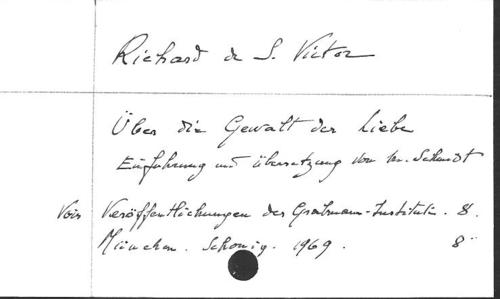 Richard de S. Victor
Über die Gewalt der Liebe
Einführung und übersetzung von M. Schmidt
Voir Veröffentlichungen des Grabmann-Instituts. 8.
München. Schöning. 1969. 8°